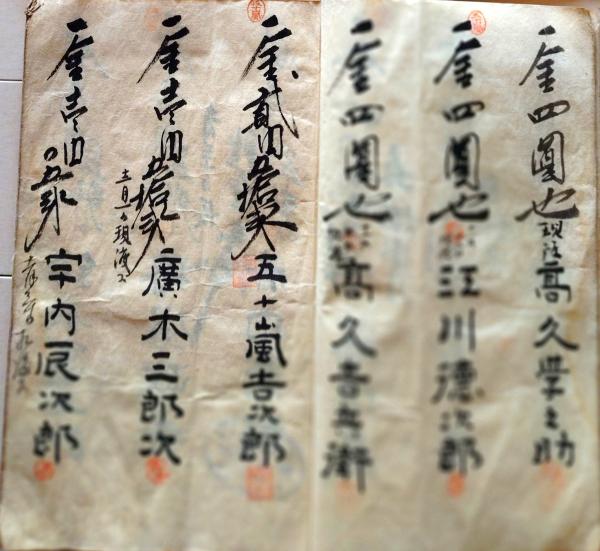 一金四圓也
現済
高久學之助
一金四圓也
江川德次郎
一金四圓也
高久吉兵衛
一金貳円五拾戋
五十嵐吉次郎
一金壱円五拾戋
十二月一日現済ス
廣木三郎次
一金壱円
宇内辰次郎